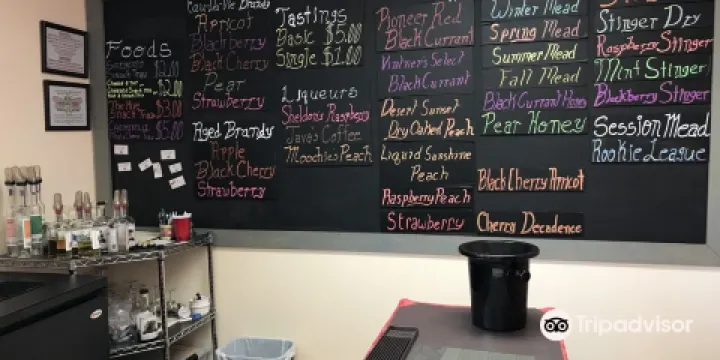 Foods
$2.00
$2.00
$3.00
$5.00
Apricot
Blackberry
Black Cherry
Pear
Strawberry
Aged Brandy
Apple
Black Cherry
Strawberry
Tastings
Basic $5.00
Single $1.00
Liqueurs
Sheldon's Raspberry
Java's Coffee
Moochies Peach
Pioneer Red
Black Currant
Vintner's Select
Black Currant
Desert Sunset
Dry Oaked Peach
Liquid Sunshine
Peach
Raspberry Peach
Strawberry
Winter Mead
Spring Mead
Summer Mead
Fall Mead
Black Currant Honey
Pear Honey
Black Cherry Apricot
Cherry Decadence
Stinger Dry
Raspberry Stinger
Mint Stinger
Blackberry Stinger
Session Mead
Rookie League
Tripadvisor